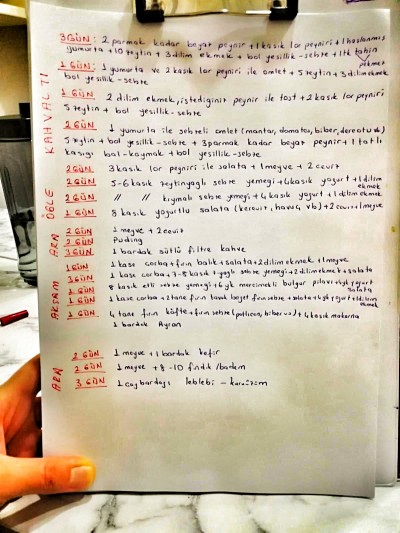 KAHVALTI
3 GÜN: 2 parmak kadar beyaz peynir + 1 kasık lor peyniri + 1 haslanmıs
yumurta + 10 zeytin + 3 dilim ekmek + bol yesillik - sebze + 1tk tahin
pekmez
1 GÜN: 1 yumurta ve 2 kasık lor peyniri ile omlet + 5 zeytin + 3 dilim ekmek
bol yesillik - sebze
1 GÜN 2 dilim ekmek, istediginiz peynir ile tost + 2 kasık lor peyniri
5 zeytin + bol yesillik - sebze
2 GÜN: 1 yumurta ile sebzeli omlet (mantar, domates, biber, dereotu vb)
5 zeytin + bol yesillik - sebze + 3 parmak kadar beyaz peynir + 1 tatlı
kasıgı bal - kaymak + bol yesillik - sebze
ÖGLE
2 GÜN 3 kasık lor peyniri ile salata + 1 meyve + 2 ceviz
2 GÜN 5-6 kasık zeytinyaglı sebze yemegi + 4 kasık yogurt + 1 dilim
ekmek
2 GÜN " " kıymalı sebze yemegi + 4 kasık yogurt + 1 dilim
ekmek
1 GÜN 8 kasık yogurtlu salata (kereviz, havuç vb) + 2 ceviz + 1 meyve
ARA
2 GÜN 1 meyve + 2 ceviz
2 GÜN Puding
3 GÜN: 1 bardak sütlü filtre kahve
AKSAM
1 GÜN 1 kase corba + fırın balık + salata + 2 dilim ekmek + 1 meyve
1 GÜN 1 kase corba + 7-8 kasık z.yaglı sebze yemegi + 2 dilim ekmek + salata
1 GÜN 8 kasık etli sebze yemegi + 6 yk mercimekli bulgur pilavı + yk yogurt
salata
1 GÜN: 1 kase corba + 2 tane fırın tavuk baget fırın sebze + salata + 4 yk yogurt + 1 dilim
ekmek
1 GÜN: 4 tane fırın köfte + fırın sebze (patlıcan, biber vs) + 4 kasık makarna
1 bardak Ayran
ARA
2 GÜN 1 meyve + 1 bardak kefir
2 GÜN 1 meyve + 8-10 fındık / badem
3 GÜN 1 cay bardagı leblebi - kuru üzüm